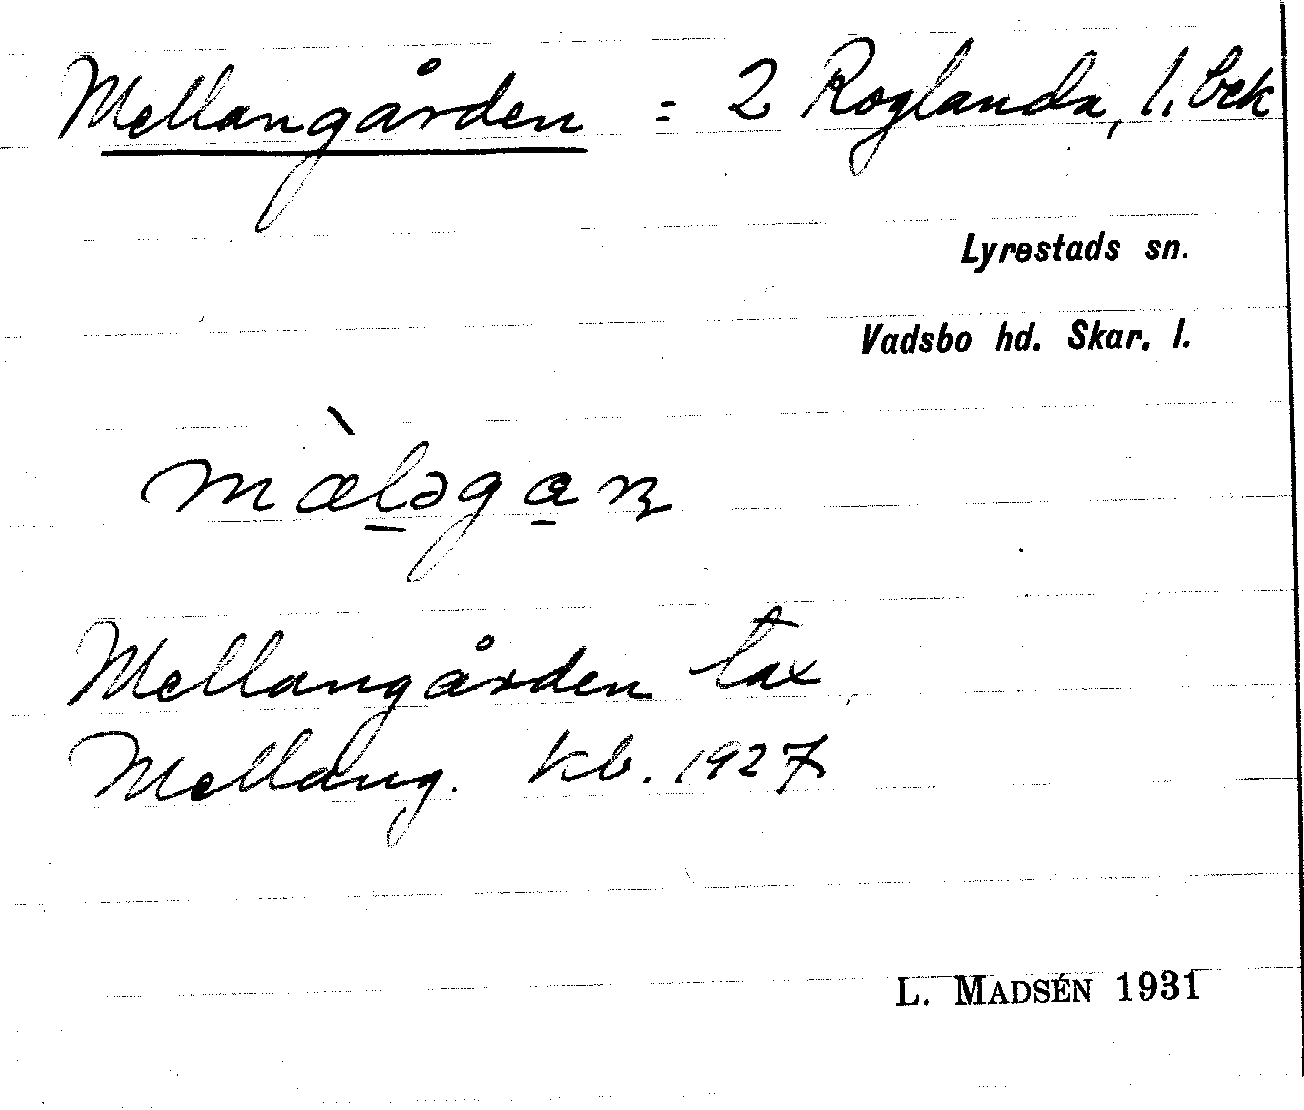 Mellangården = 2 Roglanda, 1. bek
Lyrestads sn.
Vadsbo hd. Skar. l.
mæ̀l̠əga̠ɳ
Mellangården tax
Mellang. kb. 1927
L. MADSÉN 1931